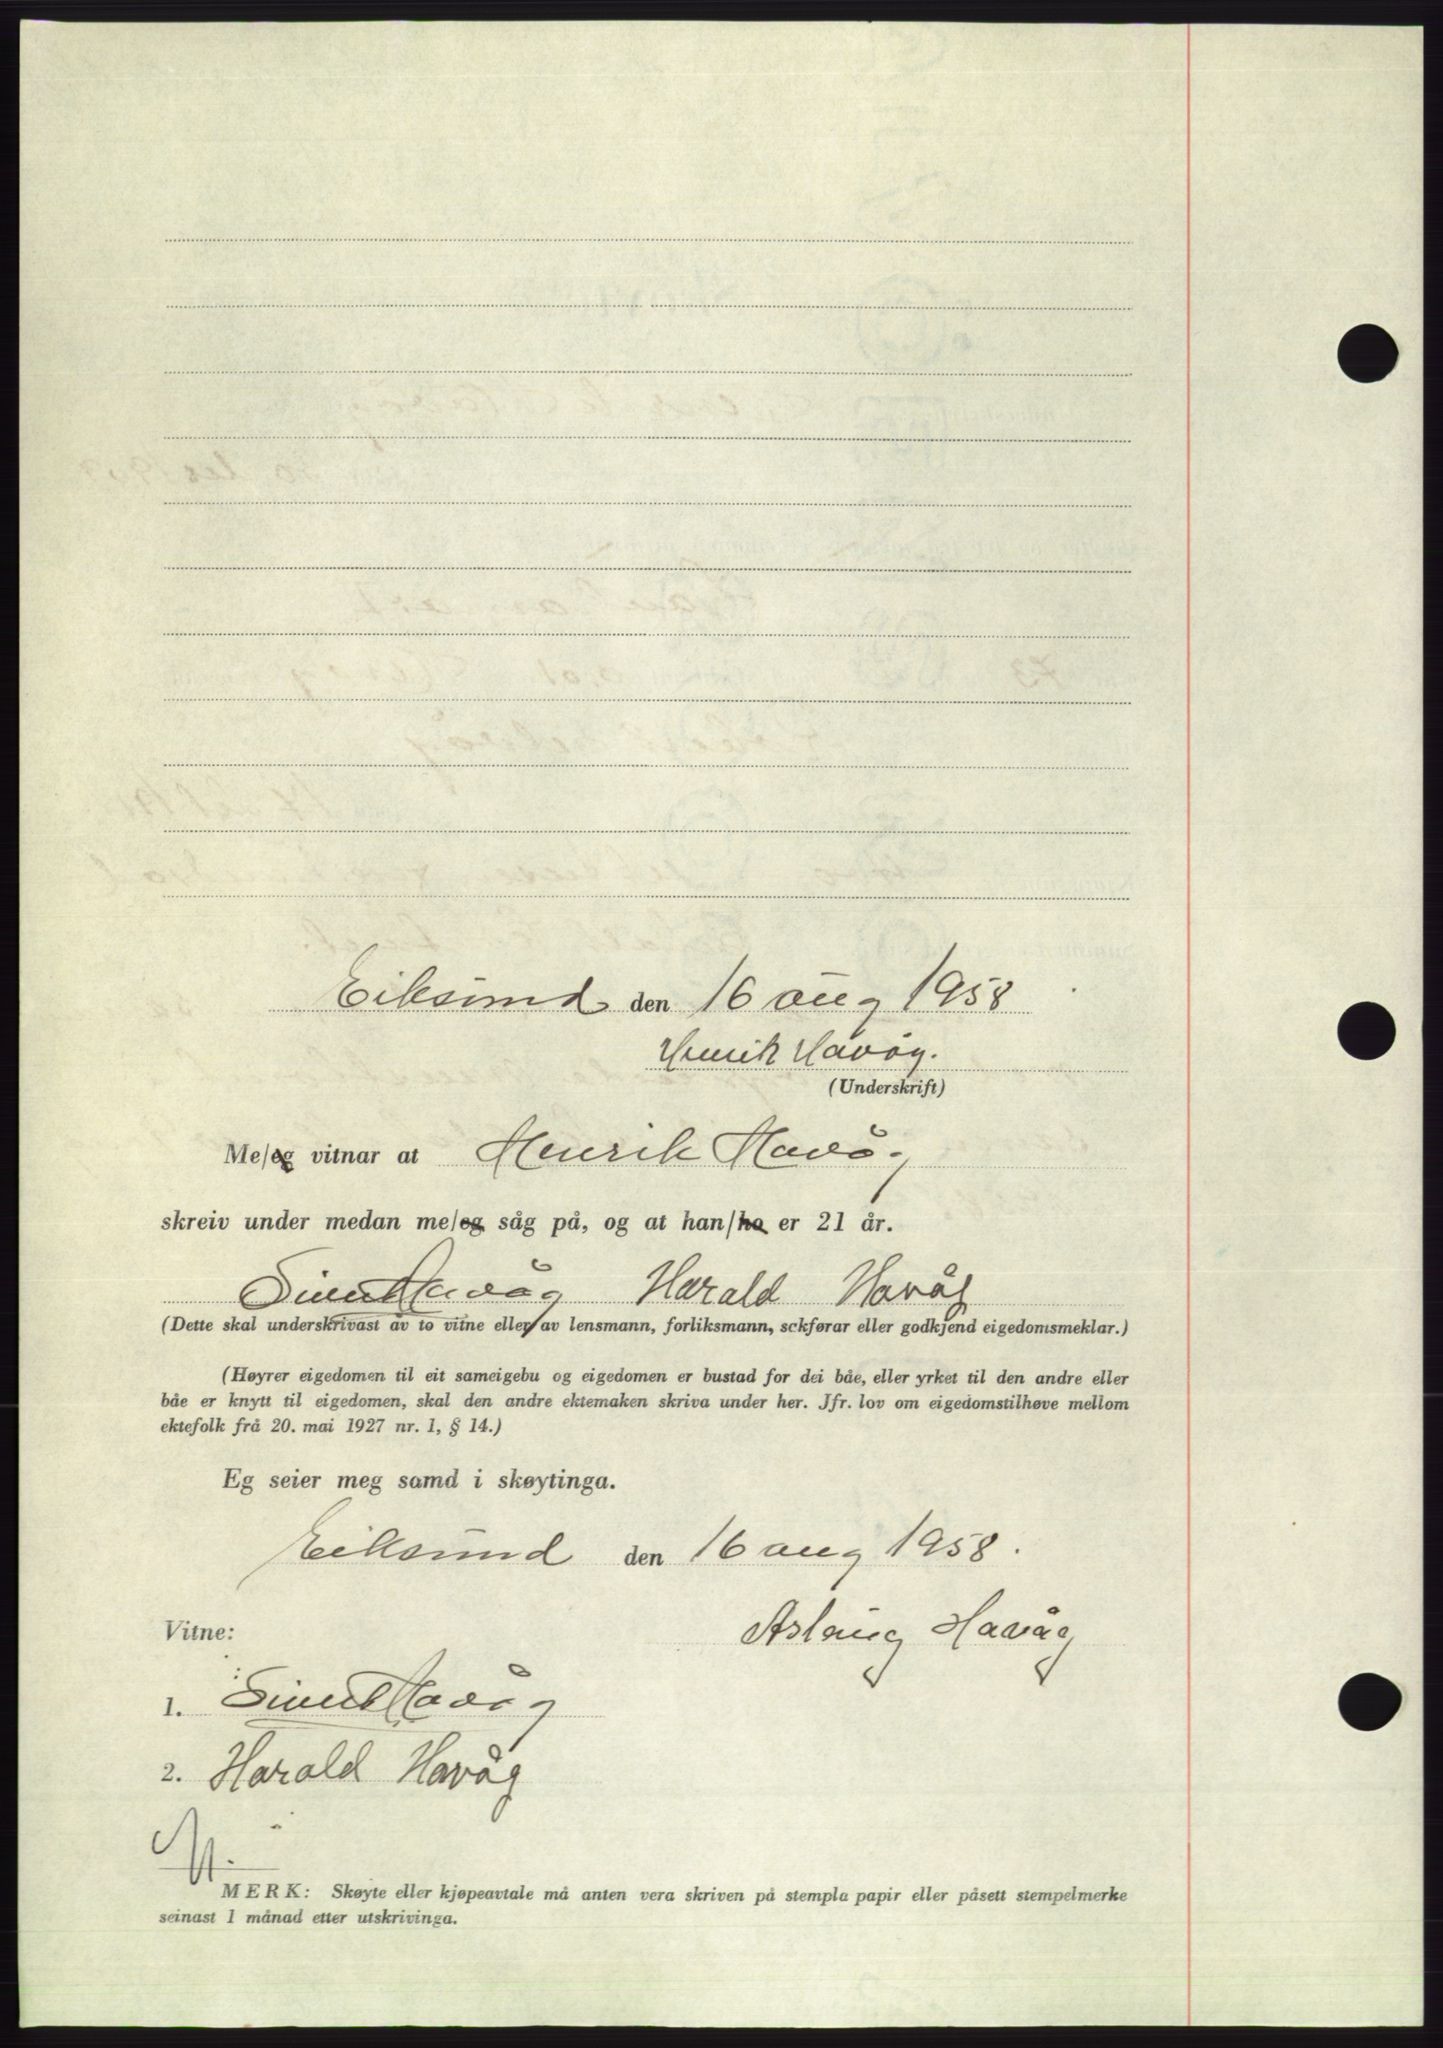 Eiksund den 16 aug 1958
Henrik Havåg.
(Underskrift)
Me/eg vitnar at Henrik Havåg
skreiv under medan me/eg såg på, og at han/ho er 21 år.
Sivert Havåg Harald Havåg
(Dette skal underskrivast av to vitne eller av lensmann, forliksmann, sckførar eller godkjend eigedomsmeklar.)
(Høyrer eigedomen til eit sameigebu og eigedomen er bustad for dei båe, eller yrket til den andre eller
båe er knytt til eigedomen, skal den andre ektemaken skriva under her. Jfr. lov om eigedomstilhøve mellom
ektefolk frå 20. mai 1927 nr. 1, § 14.)
Eg seier meg samd i skøytinga.
Eiksund den 16 aug 1958.
Vitne: Aslaug Havåg
1. Sivert Havåg
2. Harald Havåg
MERK: Skøyte eller kjøpeavtale må anten vera skriven på stempla papir eller påsett stempelmerke
seinast 1 månad etter utskrivinga.